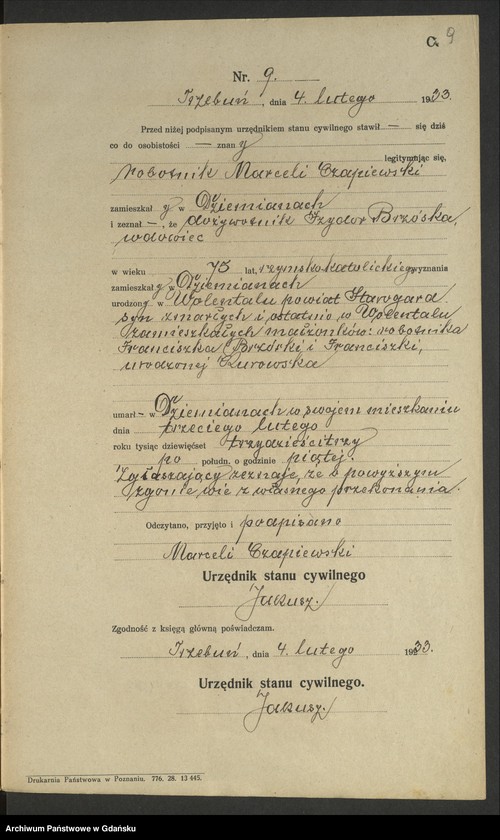 C. 9
Nr. 9.
Trzebuń, dnia 4. lutego 1933.
Przed niżej podpisanym urzędnikiem stanu cywilnego stawił — się dziś
co do osobistości — znany
legitymując się,
robotnik Marceli Czapiewski
zamieszkały w Dziemianach
i zeznał —, że dożywotnik Izydor Brzóska,
wdowiec
w wieku 75 lat, rzymskokatolickiego wyznania
zamieszkały w Dziemianach
urodzony w Wolentalu powiat Starogard
syn zmarłych i ostatnio w Wolentalu
zamieszkałych małżonków: robotnika
Franciszka Brzózki i Franciszki,
urodzonej Kurowska
umarł — w Dziemianach w swojem mieszkaniu
dnia trzeciego lutego
roku tysiąc dziewięćset trzydzieścitrzy
po połudn. o godzinie piątej.
Zgłaszający zeznaje, że o powyższym
zgonie wie z własnego przekonania.
Odczytano, przyjęto i podpisano
Marceli Czapiewski
Urzędnik stanu cywilnego
Jakusz.
Zgodność z księgą główną poświadczam.
Trzebuń, dnia 4. lutego 1933.
Urzędnik stanu cywilnego.
Jakusz.
Drukarnia Państwowa w Poznaniu. 776. 28. 13 445.
Archiwum Państwowe w Gdańsku